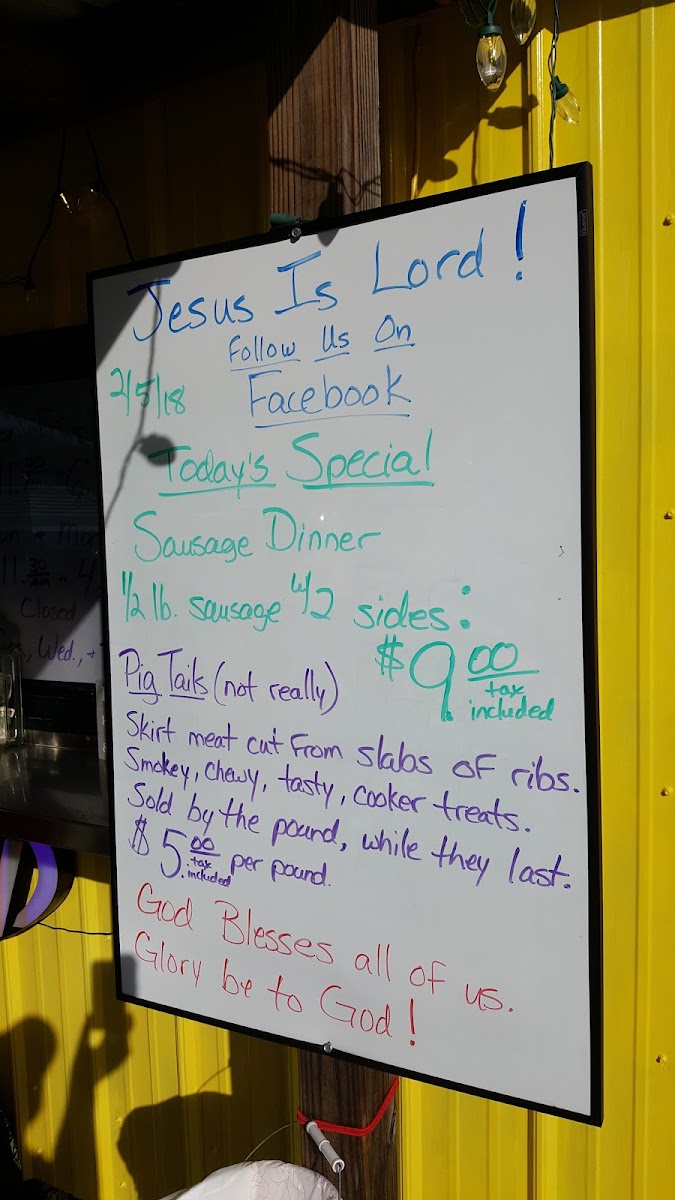 Jesus Is Lord!
Follow Us On
2/5/18 Facebook
Today's Special
Sausage Dinner
1/2 lb. sausage w/2 sides:
$9.00 tax included
Pig Tails (not really)
Skirt meat cut from slabs of ribs.
Smokey, chewy, tasty, cooker treats.
Sold by the pound, while they last.
$5.00 tax included per pound.
God Blesses all of us.
Glory be to God!
Closed
Wed., +